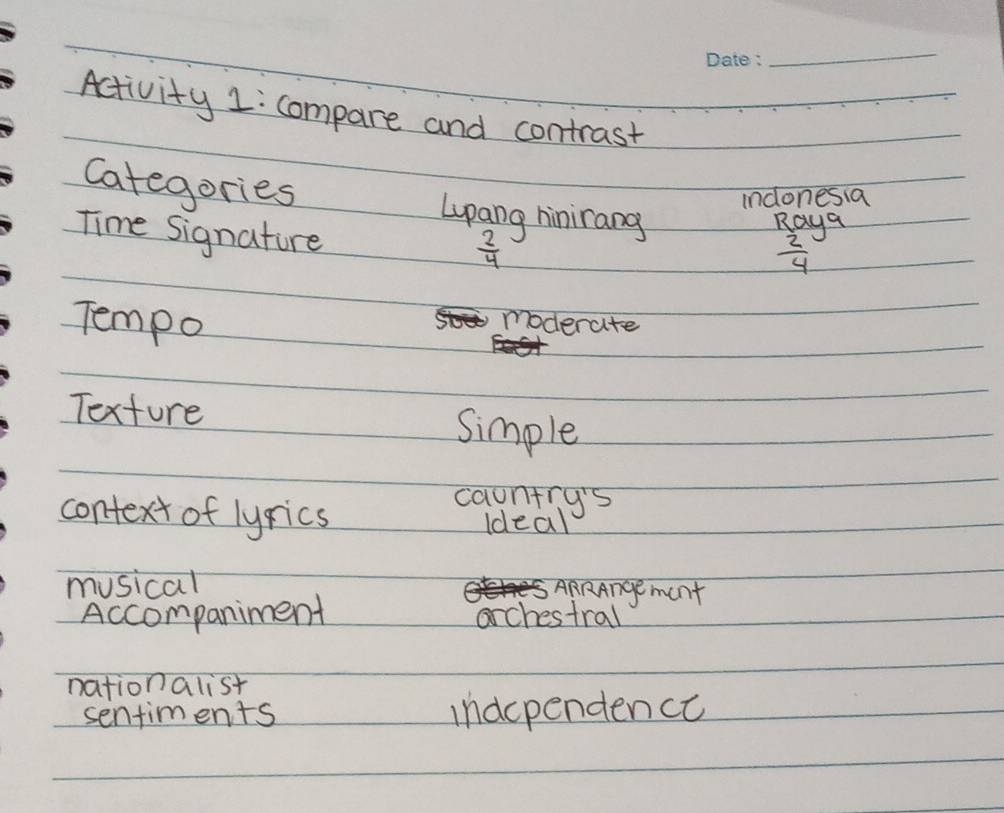 Date:
Activity 1: compare and contrast
Categories Lupang hinirang indonesia Raya
Time Signature 2/4 2/4
Tempo moderate
Texture Simple
context of lyrics cauntry's Ideal
musical Accompaniment ARRAngement orchestral
nationalist sentiments independence